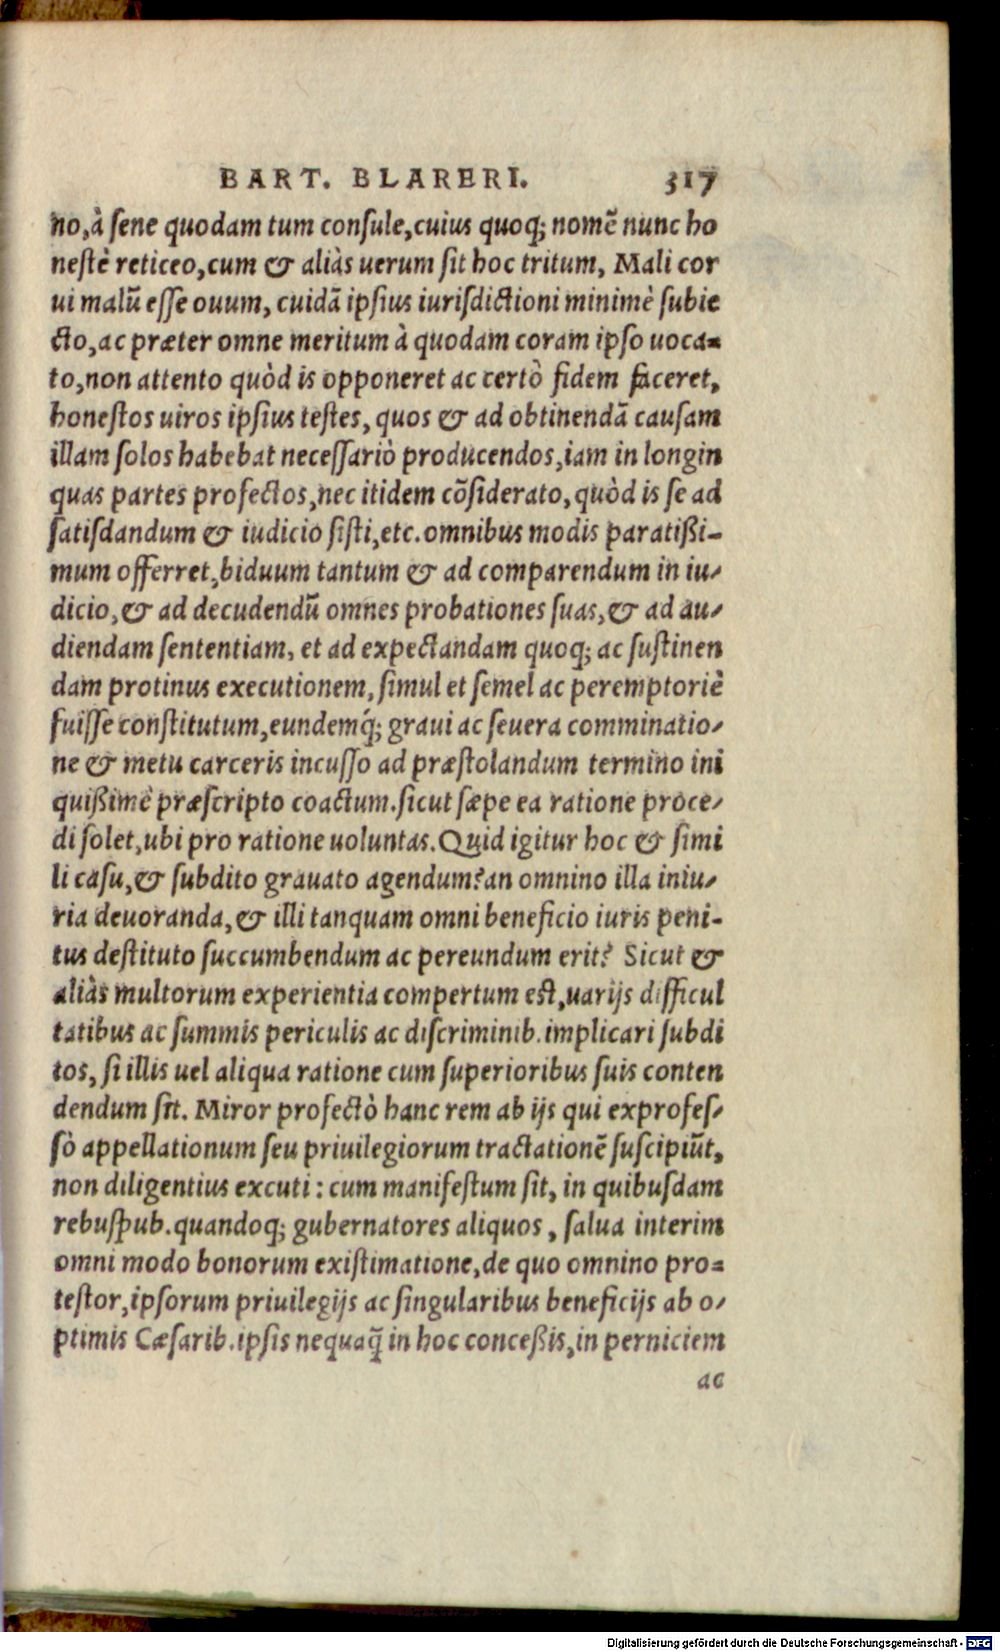 BART. BLARERI. 317
no, à sene quodam tum consule, cuius quoq; nomẽ nunc ho
nestè reticeo, cum & aliàs uerum sit hoc tritum, Mali cor
ui malũ esse ouum, cuidã ipsius iurisdictioni minimè subie
cto, ac præter omne meritum à quodam coram ipso uoca=
to, non attento quòd is opponeret ac certò fidem faceret,
honestos uiros ipsius testes, quos & ad obtinendã causam
illam solos habebat necessariò producendos, iam in longin
quas partes profectos, nec itidem cõsiderato, quòd is se ad
satisdandum & iudicio sisti, etc. omnibus modis paratißi-
mum offerret, biduum tantum & ad comparendum in iu-
dicio, & ad decudendũ omnes probationes suas, & ad au-
diendam sententiam, et ad expectandam quoq; ac sustinen
dam protinus executionem, simul et semel ac peremptoriè
fuisse constitutum, eundemq́; graui ac seuera comminatio-
ne & metu carceris incusso ad præstolandum termino ini
quißimè præscripto coactum. sicut sæpe ea ratione proce-
di solet, ubi pro ratione uoluntas. Quid igitur hoc & simi
li casu, & subdito grauato agendum? an omnino illa iniu-
ria deuoranda, & illi tanquam omni beneficio iuris peni-
tus destituto succumbendum ac pereundum erit? Sicut &
aliàs multorum experientia compertum est, uarijs difficul
tatibus ac summis periculis ac discriminib. implicari subdi
tos, si illis uel aliqua ratione cum superioribus suis conten
dendum sit. Miror profectò hanc rem ab ijs qui exprofes-
sò appellationum seu priuilegiorum tractationẽ suscipiũt,
non diligentius excuti : cum manifestum sit, in quibusdam
rebusꝑub. quandoq; gubernatores aliquos, salua interim
omni modo bonorum existimatione, de quo omnino pro=
testor, ipsorum priuilegijs ac singularibus beneficijs ab o-
ptimis Cæsarib. ipsis nequaq̃ in hoc conceßis, in perniciem
ac
Digitalisierung gefördert durch die Deutsche Forschungsgemeinschaft - DFG